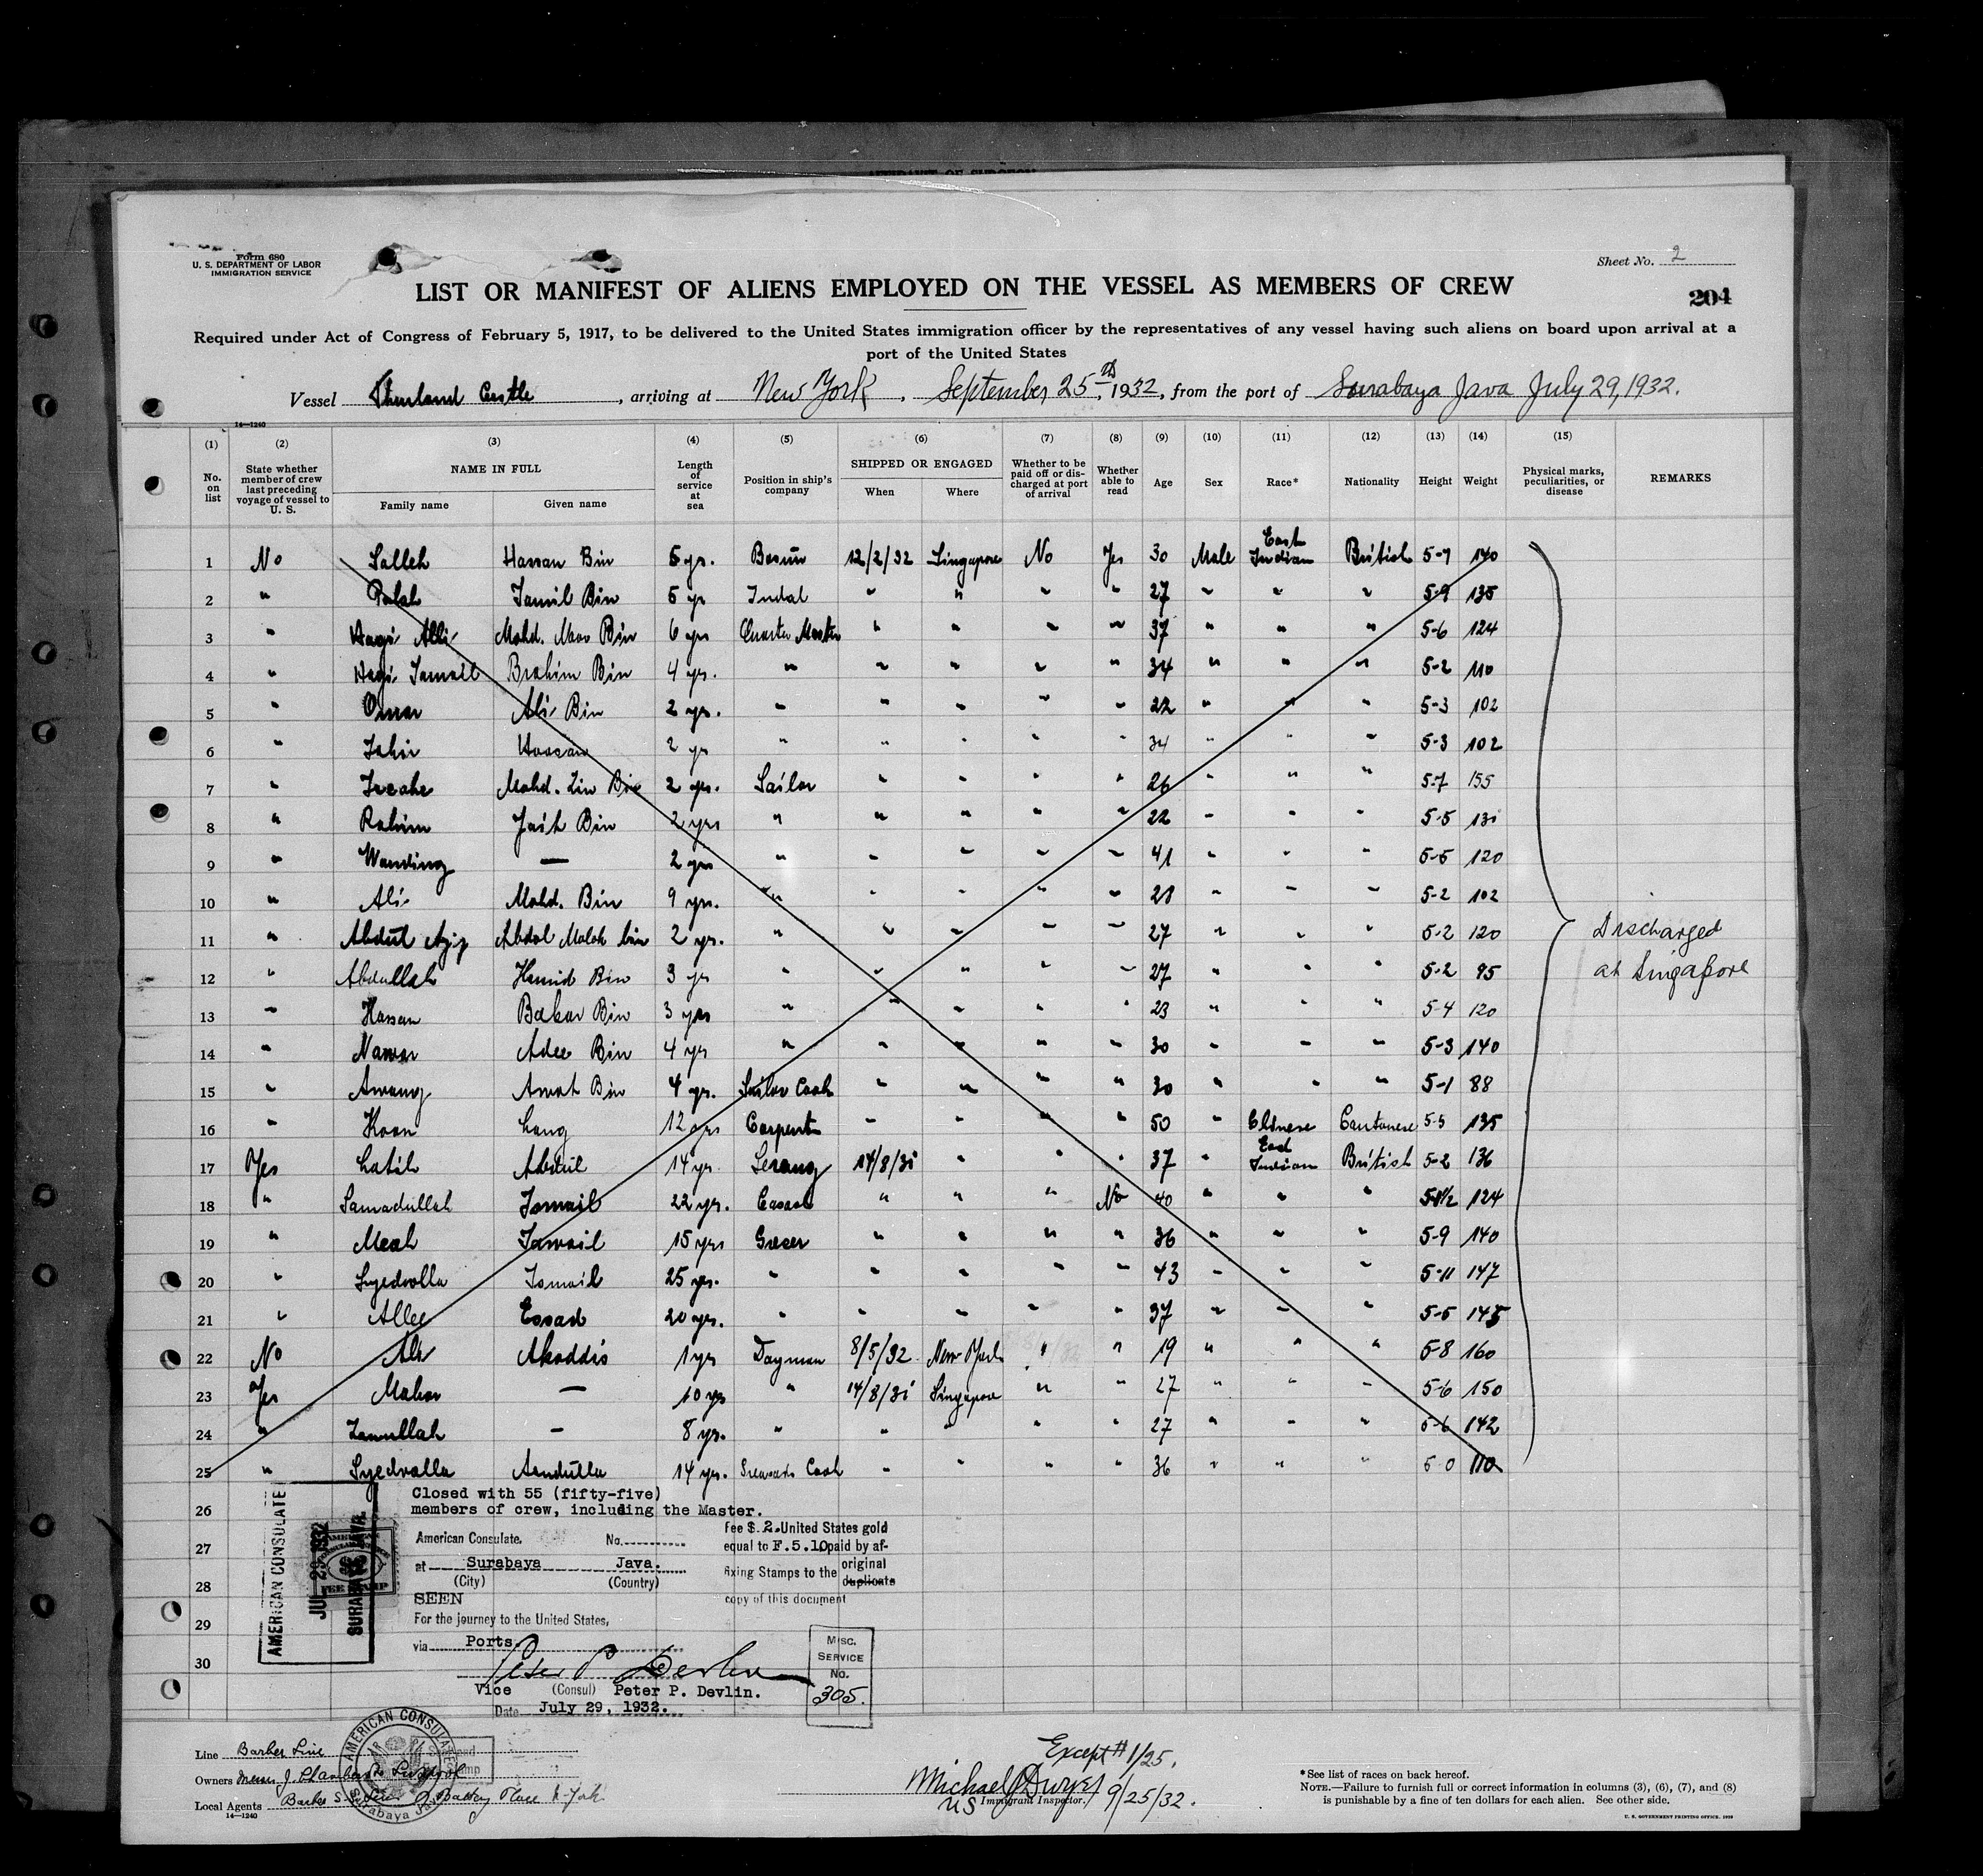 Form 680
U. S. DEPARTMENT OF LABOR
IMMIGRATION SERVICE
Sheet No. 2
LIST OR MANIFEST OF ALIENS EMPLOYED ON THE VESSEL AS MEMBERS OF CREW
204
Required under Act of Congress of February 5, 1917, to be delivered to the United States immigration officer by the representatives of any vessel having such aliens on board upon arrival at a
port of the United States
Vessel Thurland Castle, arriving at New York, September 25th, 1932, from the port of Sourabaya Java July 29, 1932.
14—1240
(1) (2) (3) (4) (5) (6) (7) (8) (9) (10) (11) (12) (13) (14) (15)
No. on list
State whether member of crew last preceding voyage of vessel to U. S.
NAME IN FULL
Family name Given name
Length of service at sea
Position in ship's company
SHIPPED OR ENGAGED
When Where
Whether to be paid off or discharged at port of arrival
Whether able to read
Age Sex Race* Nationality Height Weight
Physical marks, peculiarities, or disease
REMARKS
1 No Salleh Hassan Bin 5 yrs. Bosun 12/2/32 Singapore No Yes 30 Male East Indian British 5-7 140
2 " Jamil Bin 5 yr " " " " 27 " " " 5-9 135
3 " Hagi Alli Mohd. Noor Bin 6 yrs Quarter Master " " " " 37 " " " 5-6 124
4 " Hagi Ismail Brahim Bin 4 yrs. " " " " " 34 " " " 5-2 110
5 " Omar Ali Bin 2 yrs. " " " " " 22 " " " 5-3 102
6 " Hassan 2 yr " " " " " 34 " " " 5-3 102
7 " Mohd. Zin Bin 2 yrs. Sailor " " " " 26 " " " 5-7 155
8 " Rahim Bin 2 yrs " " " " " 22 " " " 5-5
9 " Wanding — 2 yrs " " " " " 41 " " " 5-5 120
10 " Ali Mohd. Bin 9 yrs. " " " " " 28 " " " 5-2 102
11 " Abdul Aziz Abdol Malek bin 2 yrs. " " " " " 27 " " " 5-2 120
12 " Abdullah Hamid Bin 3 yr " " " " " 27 " " " 5-2 95
13 " Hassan Bakar Bin 3 yrs " " " " " 23 " " " 5-4 120
14 " Nawar Adee Bin 4 yr " " " " " 30 " " " 5-3 140
15 " Awang Amat Bin 4 yrs. Sailor Cook " " " " 30 " " " 5-1 88
16 " Koon Long 12 yrs Carpenter " " " " 50 " Chinese Cantonese 5-5 135
17 Yes Latib Abdul 14 yr Serang 14/8/31 " " " 37 " East Indian British 5-2 136
18 " Samadullah Ismail 22 yrs. " " " No 40 " " " 124
19 " Meah Ismail 15 yrs Greser " " " " 36 " " " 5-9 140
20 " Syedvolla Ismail 25 yrs. " " " " " 43 " " " 5-11 147
21 " Allee Essad 20 yrs. " " " " " 37 " " " 5-5 145
22 No Ali Akoddis 1 yr Dayman 8/5/32 New York " " 19 " " " 5-8 160
23 Yes — 10 yrs " 14/8/31 Singapore " " 27 " " " 5-6 150
24 " Zamullah — 8 yrs. " " " " " 27 " " " 5-6 142
25 " Syedvalla Asudulla 14 yrs. Cook " " " " 36 " " " 5-0 110
Discharged
at Singapore
26
27
28
29
30
Closed with 55 (fifty-five)
members of crew, including the Master.
American Consulate. No.
at Surabaya Java.
(City) (Country)
SEEN
For the journey to the United States,
via Ports.
Peter P Devlin
Vice (Consul) Peter P. Devlin.
Date July 29, 1932.
Fee $.2. United States gold
equal to F.5.10 paid by af-
fixing Stamps to the original
duplicate
copy of this document
AMERICAN CONSULATE
JUL 29 1932
SURABAYA, JAVA.
AMERICAN
FEE STAMP
MISC.
SERVICE
No.
305.
AMERICAN CONSULATE
Surabaya Java
Line Barber Line
Owners Messrs J. Chambers Liverpool
Local Agents Barber S.S. Lines Battery Place N-York
14—1240
Except # 1/25.
Michael J Dwyer 9/25/32.
US Immigrant Inspector.
*See list of races on back hereof.
NOTE.—Failure to furnish full or correct information in columns (3), (6), (7), and (8)
is punishable by a fine of ten dollars for each alien. See other side.
U. S. GOVERNMENT PRINTING OFFICE